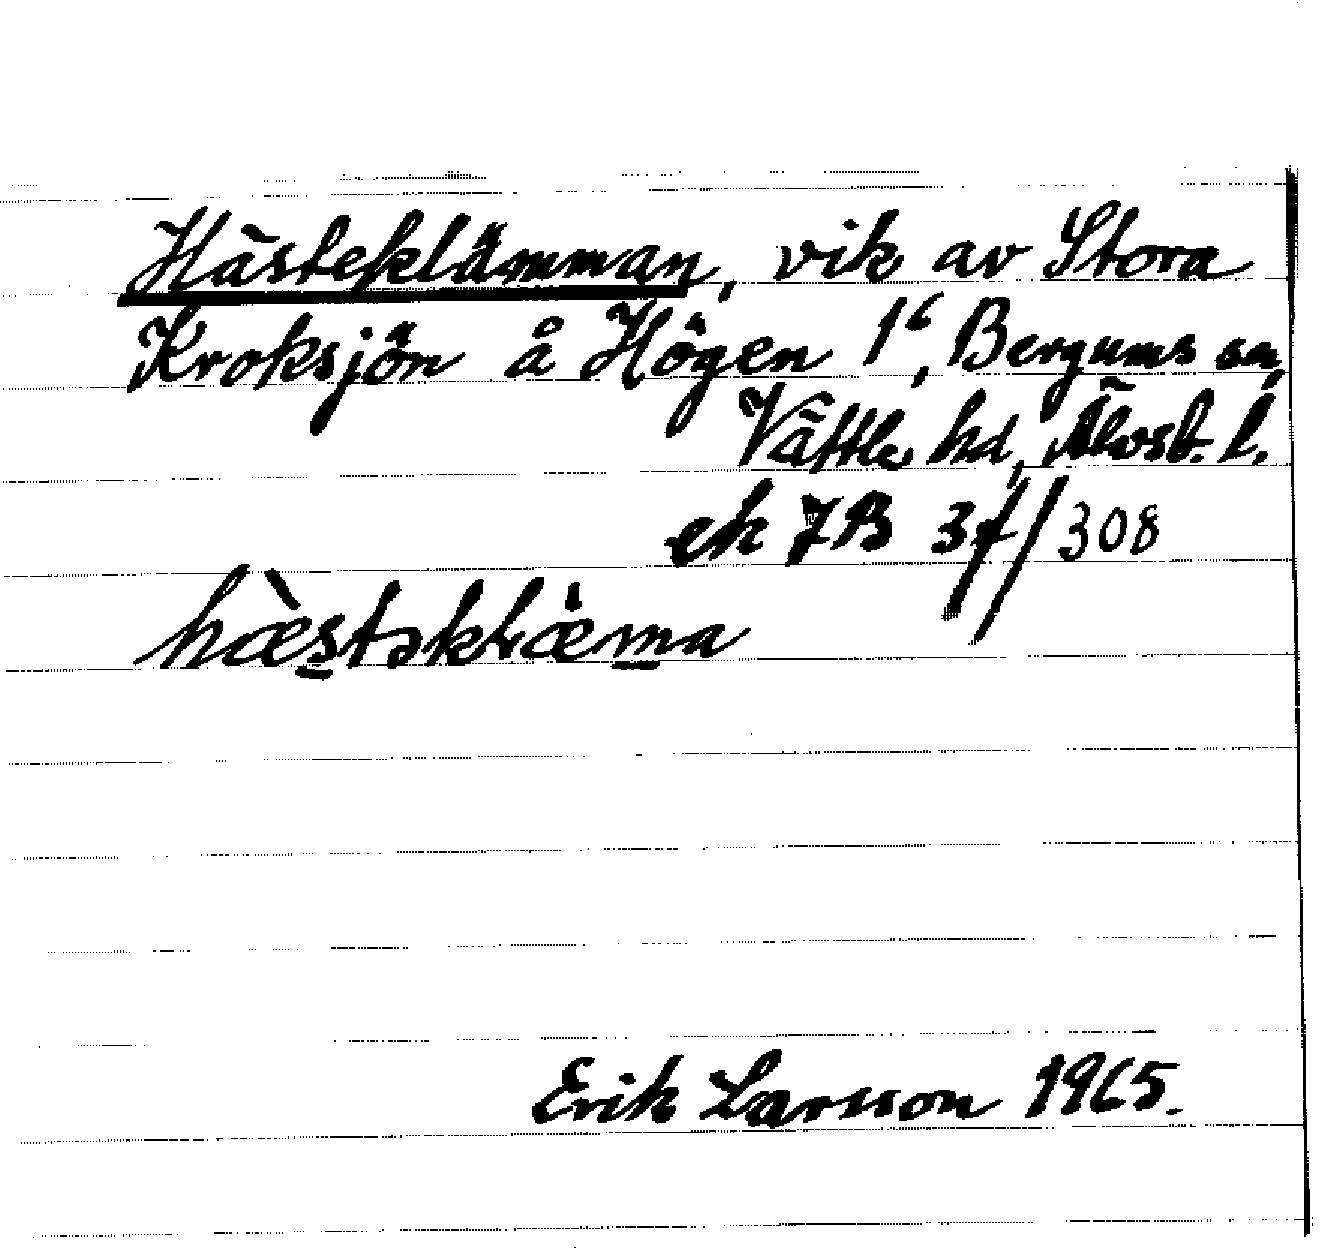 Hästeklämman, vik av Stora
Kroksjön å Högen 1⁶, Bergums sn,
Vättle hd, Älvsb. l.
ek 7B 3f/308
hæ̀stəkl̀æma
Erik Larsson 1965.